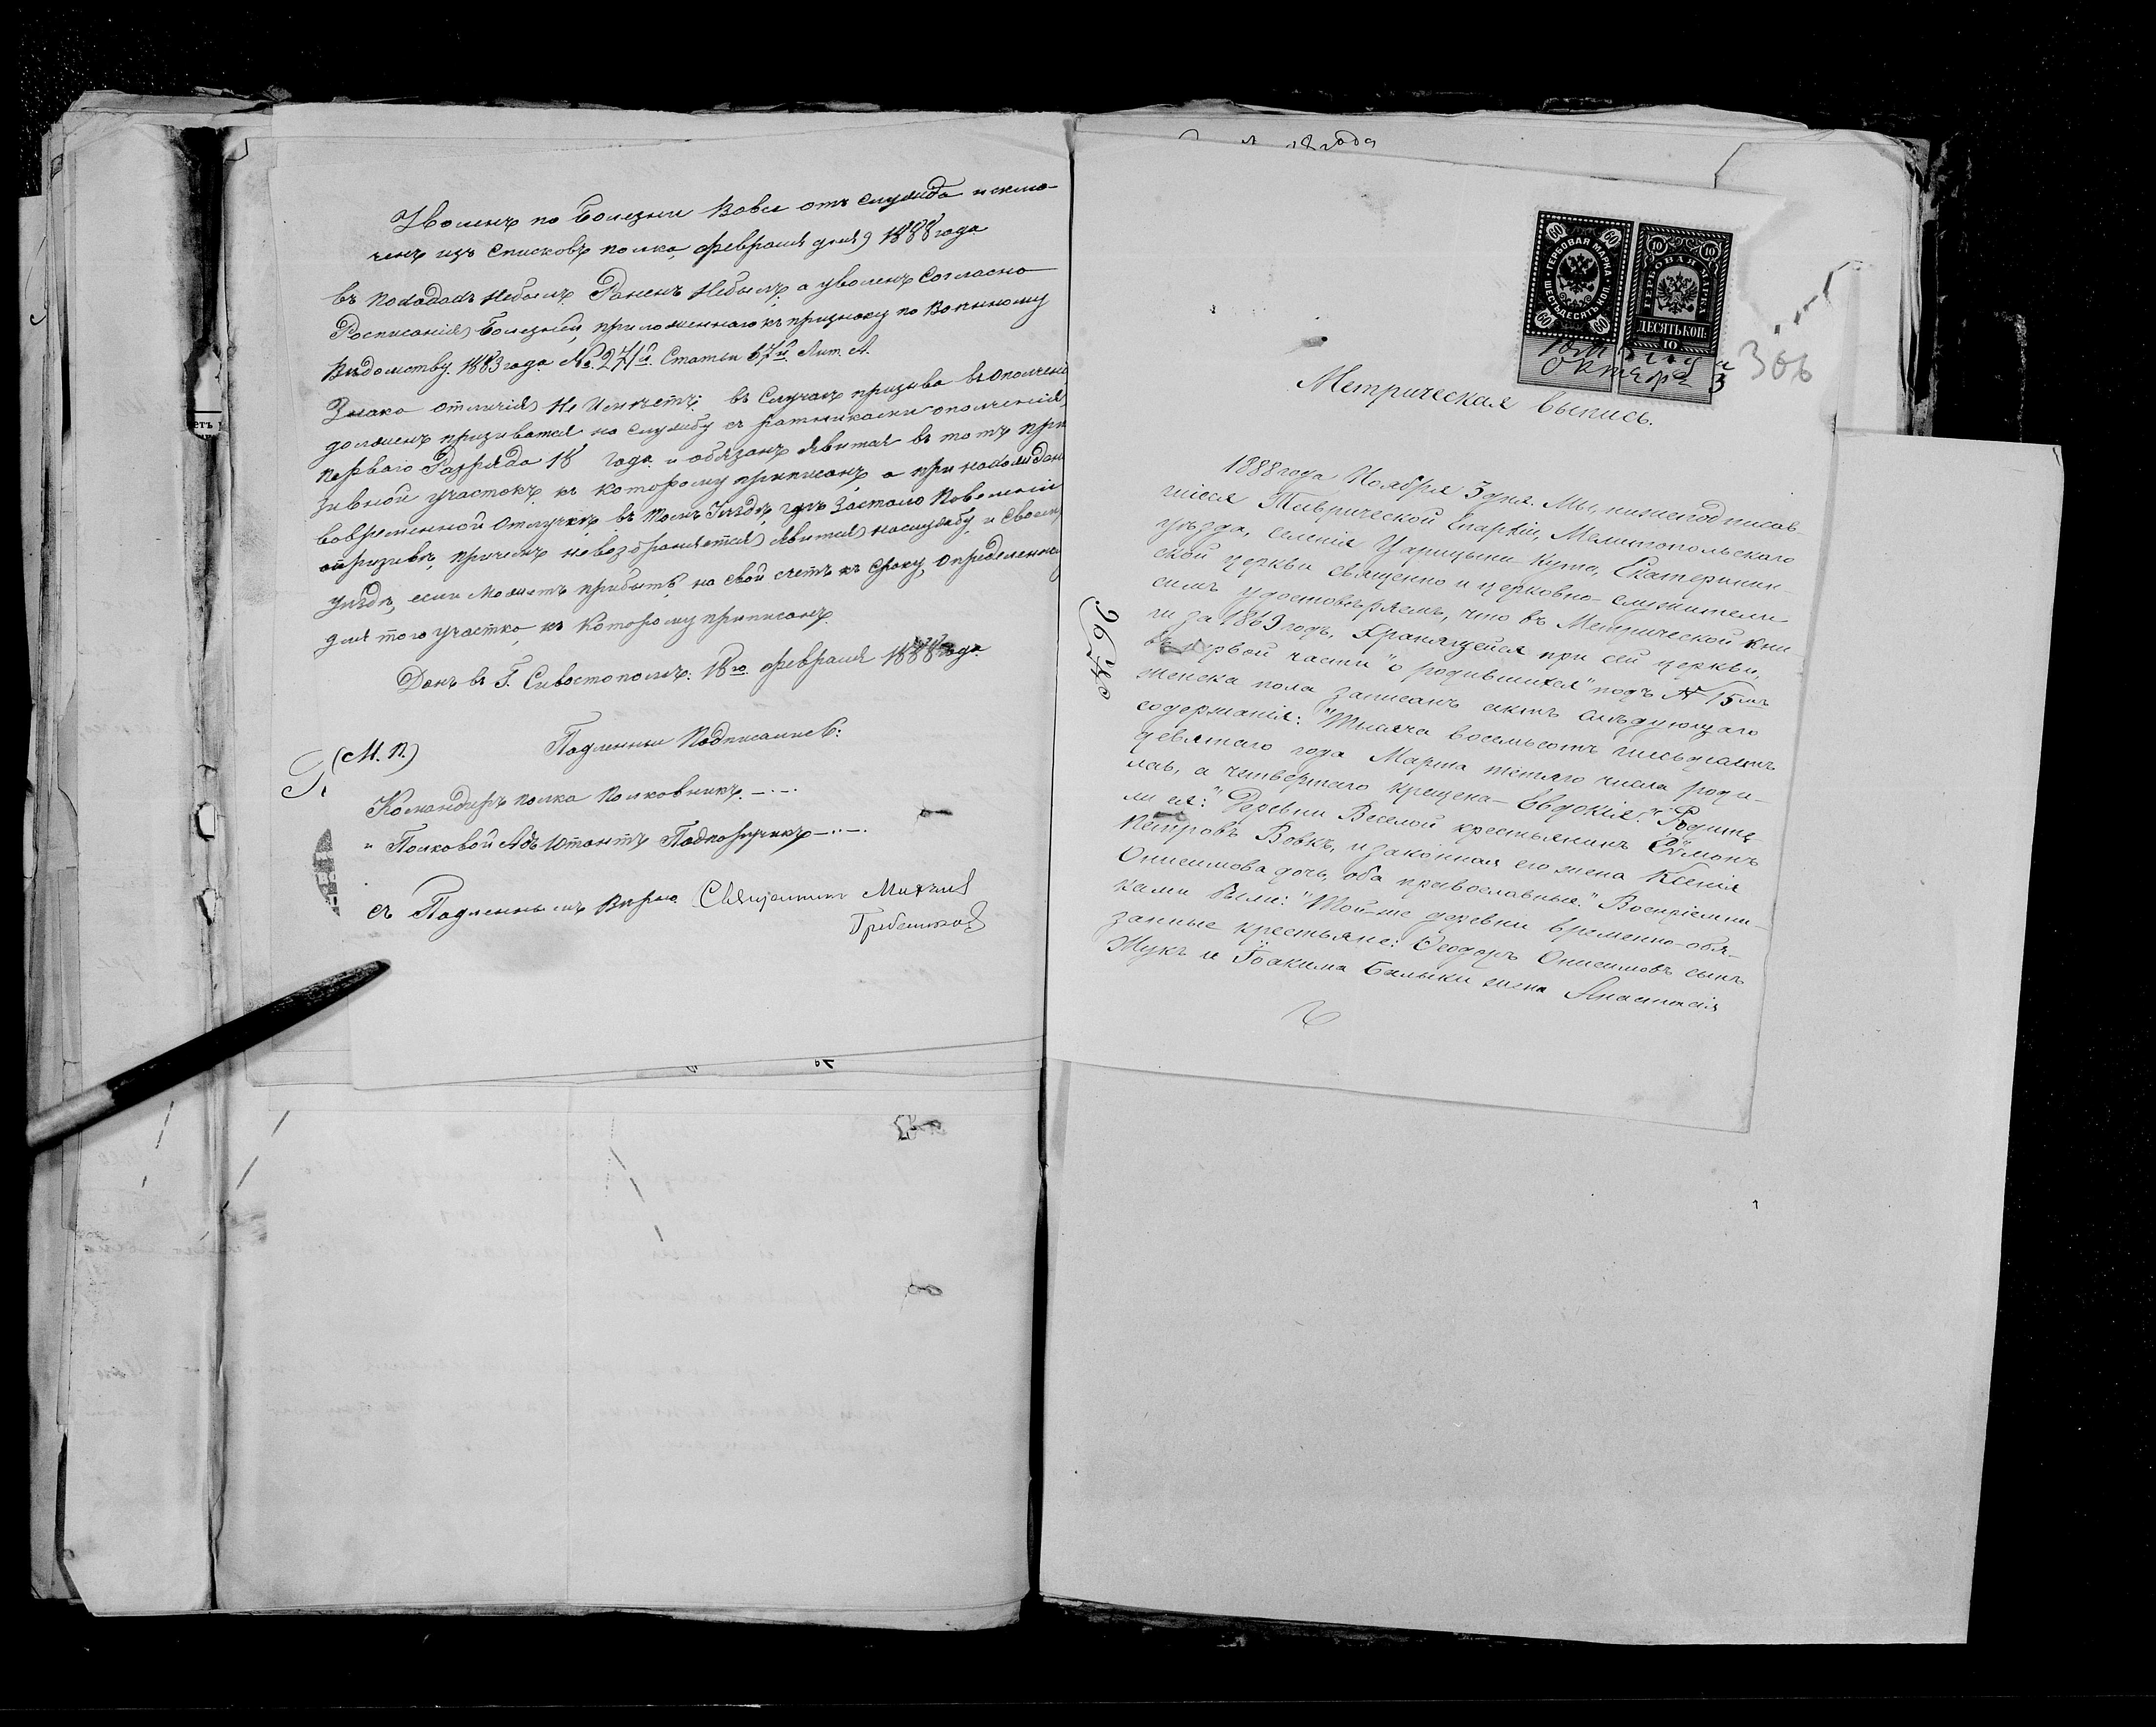 Уволенъ по болезни вовсе отъ службы исклю-
ченъ изъ списковъ полка, февраля дня 9 1888 года
въ походахъ небылъ. Раненъ небылъ, а уволенъ согласно
Росписанія болезней, приложеннаго къ приказу по Военному
Вѣдомству. 1883 года №. 271й. Статьи 67й. Лит. А.
Знака отличія не имѣетъ; въ случаѣ призыва въ ополчені
долженъ призыватся на службу съ ратниками ополченія,
перваго разряда 18 года и обязанъ явится въ тотъ при
зывной участокъ къ которому приписанъ, а при нахожден
вовременной отлучкѣ, въ томъ уѣздѣ, гдѣ застало повеленіи
опризывѣ, причемъ невозбраняется явится наслужбу и своем
уѣздѣ, если можетъ прибыть на свой счетъ къ сроку, определенно
для того участка, къ которому приписанъ.
Данъ въ Г. Сивостополѣ: 18го. февраля 1888 года.
(М. П.) Подленныи Подписалисъ:
Командиръ полка Полковникъ —.—.
и Полковой Адъютантъ Подпоручикъ —..—.
съ Подленнымъ вѣрно. Священникъ Михаил
Гребенников
года
ГЕРБОВАЯ МАРКА
ШЕСТЬДЕСЯТЬ КОП.
60 60 60 60
10 10
ГЕРБОВАЯ МАРКА
ДЕСЯТЬ КОП.
10
3
306
Метрическая выпись.
1888 года Ноября 3 дня. Мы, нижеподписав-
шіеся Таврической Епархіи, Мелитопольскаго
уѣзда, селенія Царицына-Кута, Екатеринин-
ской церкви священно и церковно-служители
симъ удостовѣряемъ, что въ Метрической кни-
ги за 1869 годъ, хранящейся при сей церкви,
въ первой части "о родившихся" подъ № 15мъ
женска пола записанъ актъ слѣдующаго
содержанія: "Тысяча восемьсотъ шесьдесятъ
девятаго года Марта третяго числа роди-
лась, а четвертаго крещена — Евдокія." Родите
ли ея: "Деревни Веселой крестьянинъ Сѵмонъ
Петровъ Вовкъ, и законная его жена Ксенія
Онисимова дочь, оба православные." Воспріемни-
ками были: "Той-же деревни временно-обя-
занные крестьяне: Ѳеодоръ Онисимовъ сынъ
Жукъ и Іоакима Балыки жена Анастасія